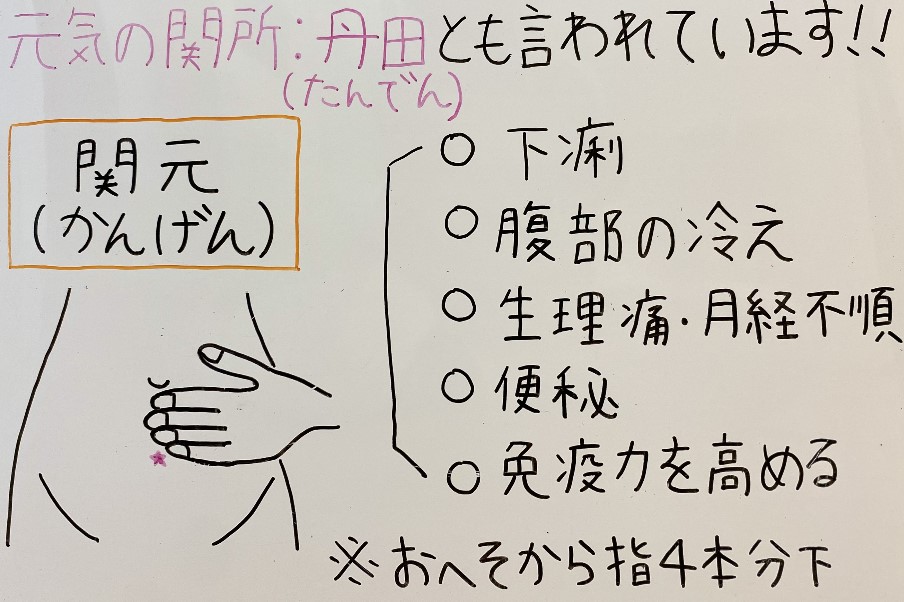 元気の関所:丹田とも言われています!!
(たんでん)
関元
(かんげん)
○ 下痢
○ 腹部の冷え
○ 生理痛・月経不順
○ 便秘
○ 免疫力を高める
※おへそから指4本分下